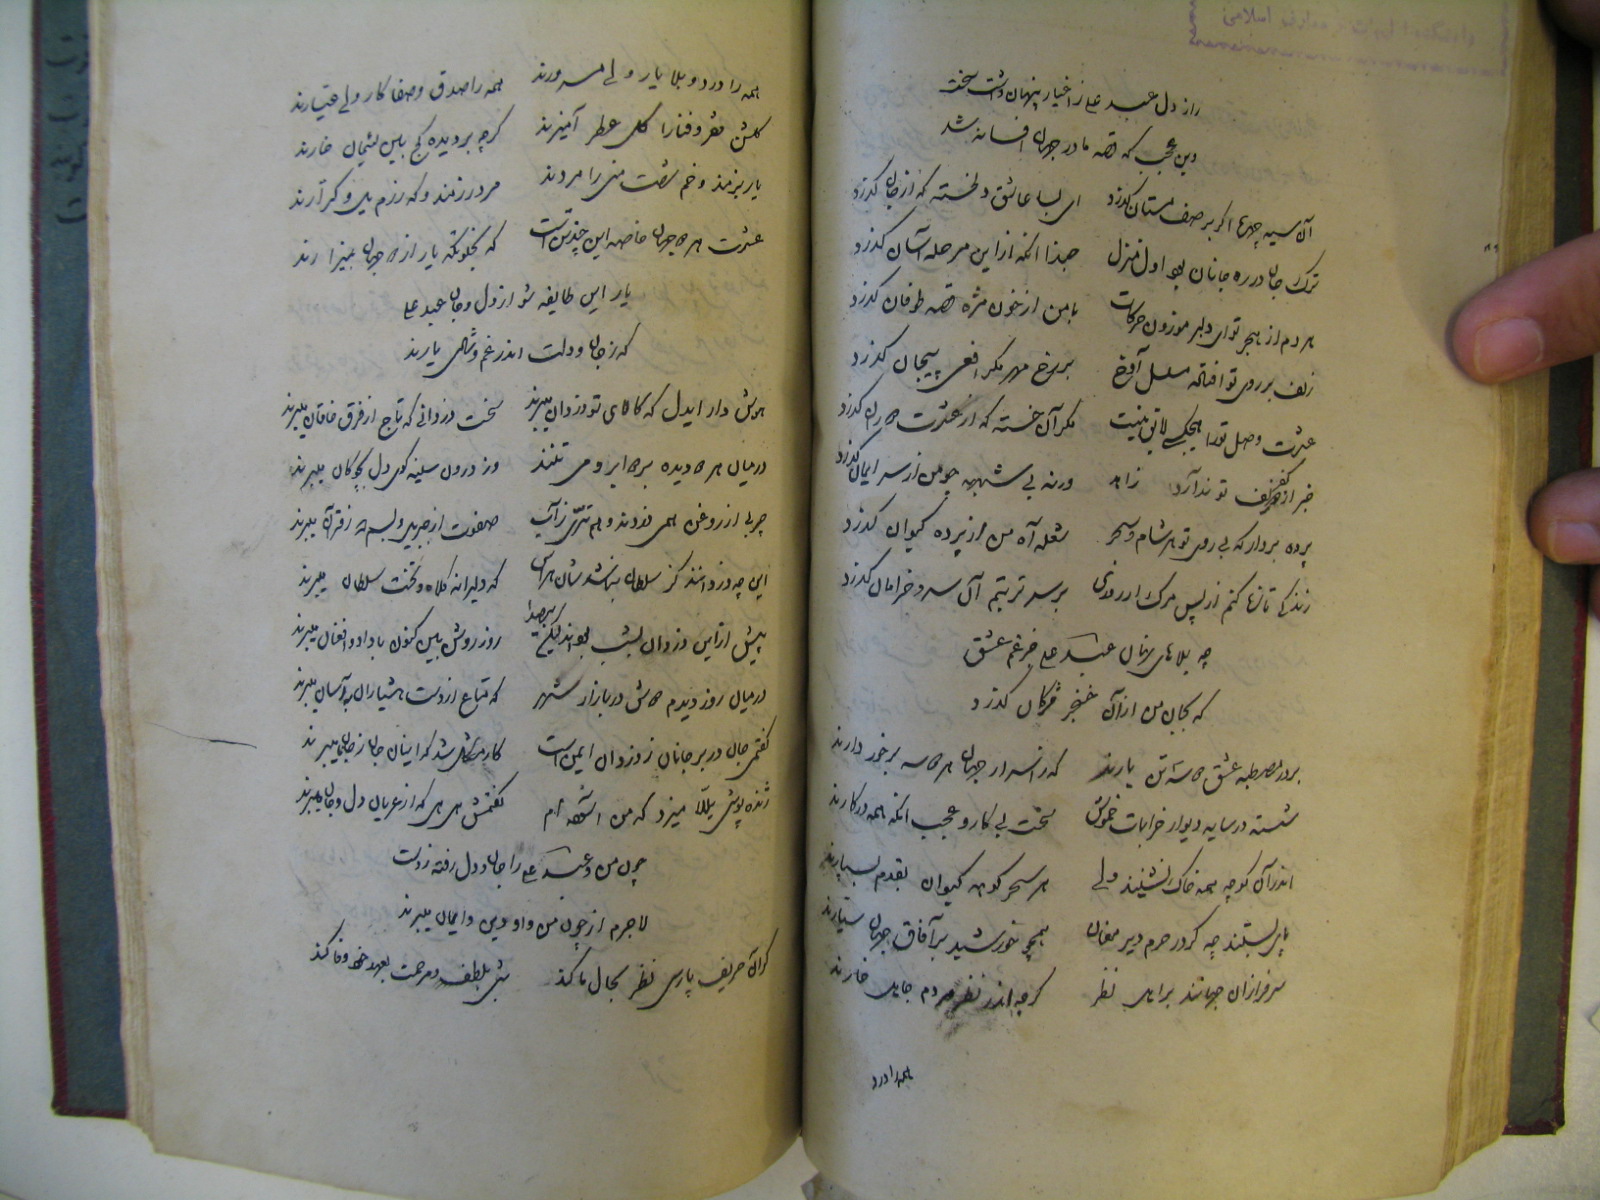 راز دل عبد علی ز اغیار پنهان داشت سخت
وین عجب که قصه ما در جهان افسانه شد
آن سیه چهرها اگر بر صف مستان گذرد ای بسا عاشق دلخسته که از جان گذرد
ترک جان در ره جانان بود اول منزل حبذا آنکه از این مرحله آسان گذرد
هر دم از هجر تو ای دلبر موزون حرکات با من از خون مژه قصه طوفان گذرد
زلف بر روی تو افتاده مسلسل آوخ بر رخ مهر مگر افعی پیچان گذرد
عشرت وصل تو را هیچکسی لایق نیست مگر آن خسته که از عشرت گذرد
خبر از کفر زلف تو ندارد زاهد ورنه بی شبهه چو من از سر ایمان گذرد
پرده بردار که بی روی تو هر شام و سحر شعله آه من از پرده کیوان گذرد
زندگی تازه کنم از پس مرگ ار روزی بر سر تربتم آن سرو خرامان گذرد
چه بلاهای نهان عبد علی خر غم عشق
که بجان من از آن خنجر مژگان گذرد
بر در مصطبه عشق یارند که ز اسرار جهان برخوردارند
شسته در سایه دیوار خرابات خموش سخت بی کار و عجب آنکه همه در کارند
اندر آن کوچه همه خاک نشینند ولی هر سحر کوه کیوان بقدم بسپارند
پای بستند چه گرد حرم دیر مغان همچو خورشید بر آفاق جهان سیارند
سرفرازان جهانند بر اهل نظر گرچه اندر نظر مردم جاهل خارند
همه را درد
همه را درد و بلا یار ولی مسرورند همه را صدق و صفا کار ولی عیارند
گلشن فقر و فنا را گل عطر آمیزند گرچه بر دیده کج بین لئیمان خارند
یار بزمند و خم شصت منی را مردند مرد رزمند و که رزم یل و کرارند
عشرت هر جهان خاصه این چند تن است که بخلوتگه یار از جهان بیزارند
یار این طایفه شو از دل و جان عبد علی
که ز جان و دلت اندر غم و شادی یارند
هوش دار ایدل که کالای تو دزدان میبرند سخت دزدانی که تاج از فرق خاقان میبرند
در میان هر دیده بر ابرو می تنند وز درون سینه گوی دل بچوگان میبرند
چربی از روغن همی دزدند و هم تری ز آب صفوت از جبریل و بسم الله ز قرآن میبرند
این چه دزدانند کز سلطان نباشدشان هراس که دلیرانه کلاه و تخت سلطان میبرند
پیش از این دزدان بشب بودند لیکن بیصدا روز روشن بین کنون با داد و افغان میبرند
در میان روز دیدم در بازار شهر که متاع از دست هشیاران چه آسان میبرند
گفتمی جان در بر جانان ز دزدان ایمن است کار مشکل شد که اینان جان ز جانان میبرند
ژنده پوشی یللا میزد که من آسوده ام گفتمش هی هی که از عریان دل و جان میبرند
چون من و عبد علی را جان و دل رفته ز دست
لاجرم از چون من و او دین و ایمان میبرند
گر آن حریف پارسی نظر بحال ما کند بلطف و مرحمت بعهد خود وفا کند